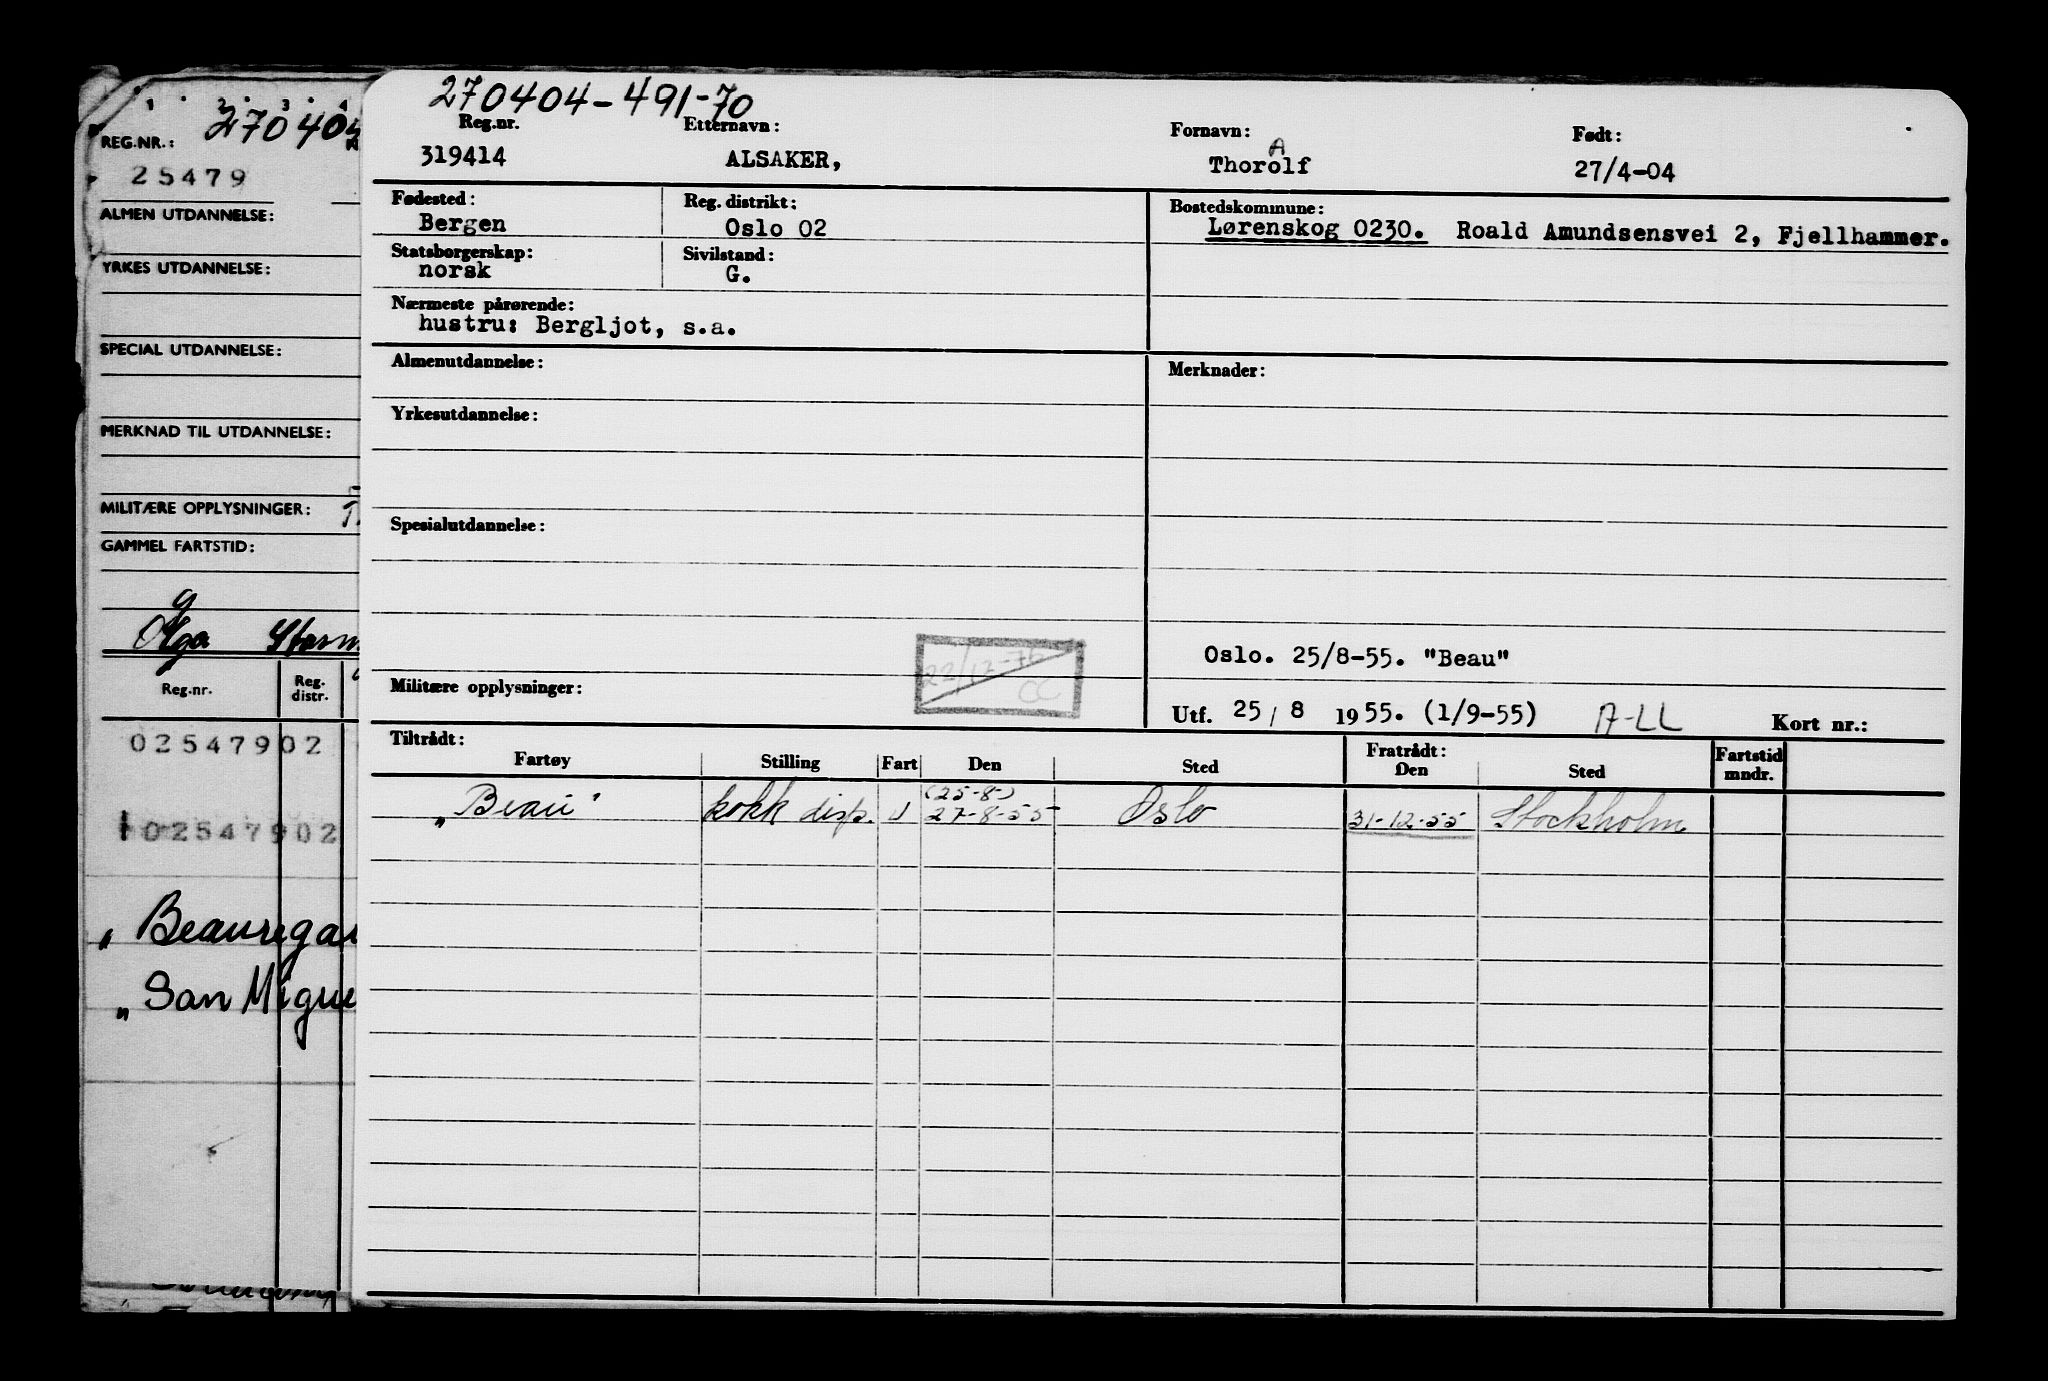 1 . 2 . 3 . 4
REG.NR.: 27040
25479
ALMEN UTDANNELSE:
YRKES UTDANNELSE:
SPECIAL UTDANNELSE:
MERKNAD TIL UTDANNELSE:
MILITÆRE OPPLYSNINGER:
GAMMEL FARTSTID:
Olga
Reg.nr. Reg. distr.
02547902
02547902
„Beauregar
„San Migue
270404-491-70
Reg.nr. Etternavn: Fornavn: Født:
A
319414 ALSAKER, Thorolf 27/4-04
Fødested: Reg. distrikt: Bostedskommune:
Bergen Oslo 02 Lørenskog 0230. Roald Amundsensvei 2, Fjellhammer.
Statsborgerskap: Sivilstand:
norsk G.
Nærmeste pårørende:
hustru: Bergljot, s.a.
Almenutdannelse: Merknader:
Yrkesutdannelse:
Spesialutdannelse:
22/12-76
CC
Oslo. 25/8-55. "Beau"
Militære opplysninger:
Utf. 25/8 1955. (1/9-55) A-LL Kort nr.:
Tiltrådt: Fratrådt:
Fartøy Stilling Fart Den Sted Den Sted Fartstid mndr.
(25-8-)
„Beau" kokk disp. U 27-8-55 Oslo 31-12-55 Stockholm